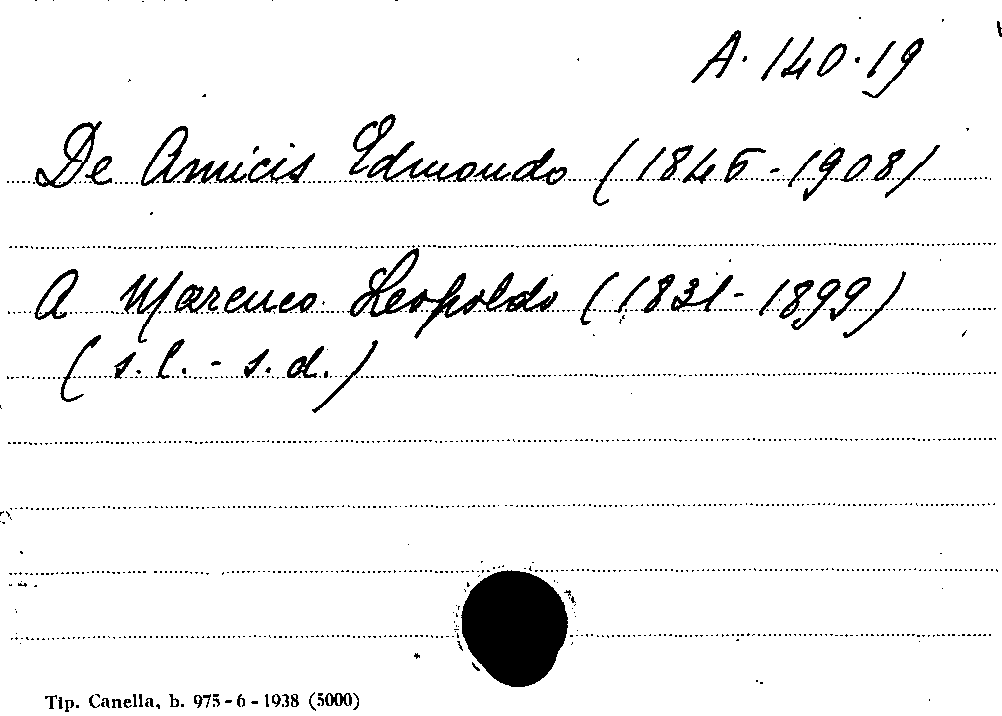 A. 140.19
De Amicis Edmondo (1846-1908)
A Marenco Leopoldo (1831-1899)
(s.l. - s.d.)
Tip. Canella, b. 975-6-1938 (5000)